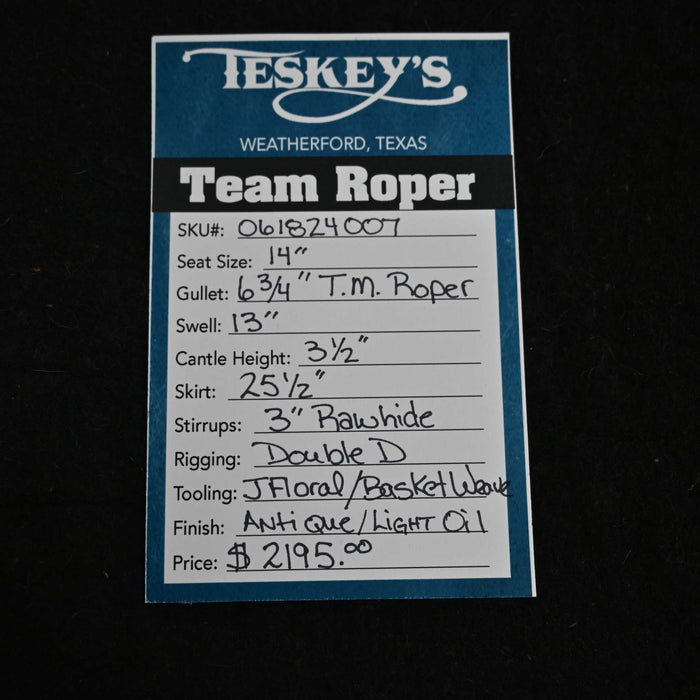 TESKEY'S
WEATHERFORD, TEXAS
Team Roper
SKU#: 061824007
Seat Size: 14"
Gullet: 6 3/4" T.M. Roper
Swell: 13"
Cantle Height: 3 1/2"
Skirt: 25 1/2"
Stirrups: 3" Rawhide
Rigging: Double D
Tooling: J Floral/Basket Weave
Finish: Antique/Light Oil
Price: $2195.00